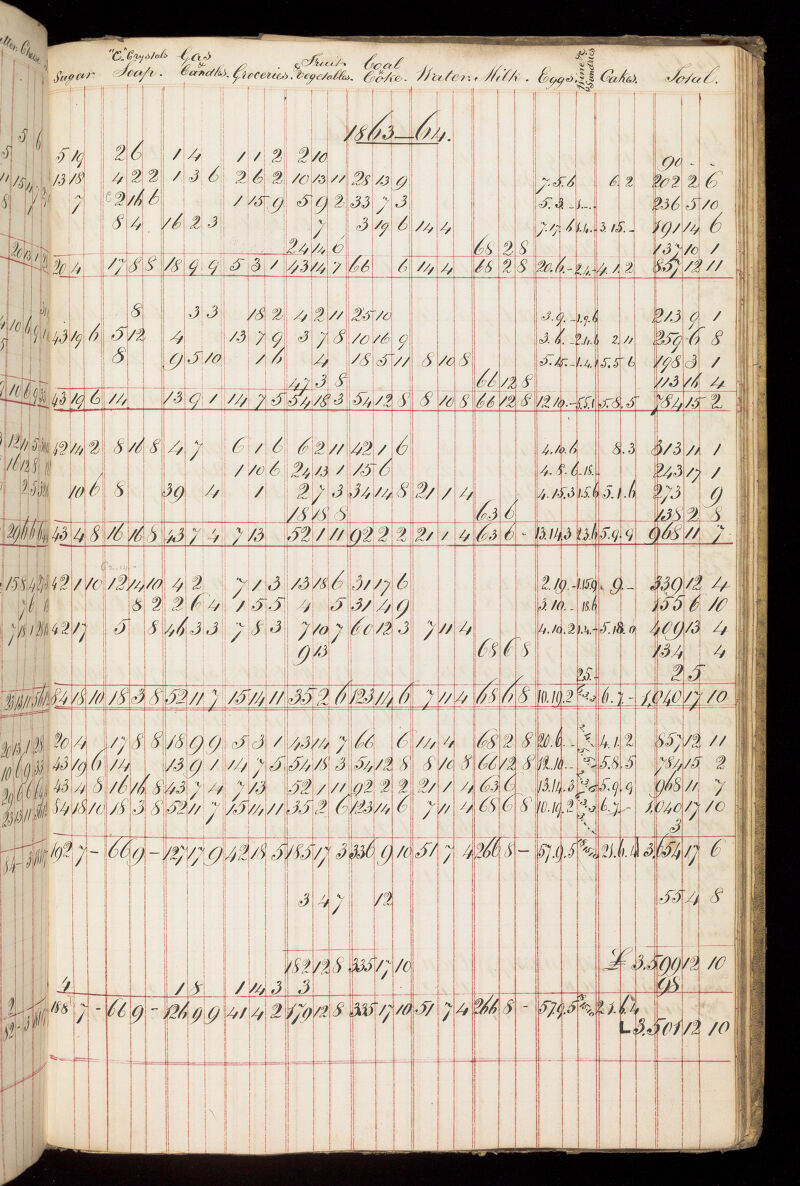 Sugar. "C." Crystals Soap. Gas & Candles. Groceries. Fruit & Vegetables. Coal & Coke. Water. Milk. Eggs. Wine & Sundries Cakes. Total.
1863–64.
5 19 2 6 1 4 1 1 2 2 10 90 - -
13 18 4 2 2 1 3 6 2 6 2 10 13 11 28 13 9 7.5.6 6.2 202 2 6
7 2 16 6 1 15 9 5 9 2 33 7 3 5.3.- 236 5 10
8 4 16 2 3 7 3 19 6 14 4 7.17.6 1.4.- 3.15.- 191 14 6
24 14 6 68 2 8 137 10 1
20 4 17 8 8 18 9 9 5 3 1 43 14 7 66 6 14 4 68 2 8 20.6.- 2.4.- 4.1.2 857 12 11
8 3 3 18 2 4 2 11 25 10 3.9.- 1.9.6 213 9 1
43 19 6 5 12 4 13 7 9 3 7 8 10 16 9 3.6.- 2.11.6 2.11 259 6 8
8 9 5 10 1 6 4 18 5 11 8 10 8 5.15.- 1.4.1 5.5.6 198 3 1
47 3 8 66 12 8 113 16 4
43 19 6 14 13 9 1 14 7 5 54 18 3 54 12 8 8 10 8 66 12 8 12.10.- 5.5.1 5.8.5 784 15 2
42 14 2 8 16 8 4 7 6 1 6 6 2 11 42 1 6 4.10.6 8.3 313 11 1
1 10 6 24 13 1 15 6 4.8.6 .18.- 243 17 1
10 6 8 39 4 1 2 7 3 34 14 8 21 1 4 4.15.3 1.5.6 5.1.6 273 9
18 18 8 63 6 138 2 8
43 4 8 16 16 8 43 7 4 7 13 52 1 11 92 2 2 21 1 4 63 6 - 13.14.3 2.3.6 5.9.9 968 11 7
42 1 10 12 14 10 4 2 7 1 3 13 18 6 31 17 6 2.19.- 1.15.9 .9.- 339 12 4
8 2 2 6 4 1 5 5 4 5 31 4 9 3.10.- .18.6 155 6 10
42 17 5 8 46 3 3 7 8 3 7 10 7 60 12 3 7 11 4 4.10.2 1.4.- 5.18.0 409 13 4
9 13 68 6 8 134 4
25.- 2 5
84 18 10 18 3 8 52 11 7 15 14 11 35 2 6 123 14 6 7 11 4 68 6 8 10.19.2 6.3.3 6.7.- 1,040 17 10
20 4 17 8 8 18 9 9 5 3 1 43 14 7 66 6 14 4 68 2 8 20.6.- 2.4.- 4.1.2 857 12 11
43 19 6 14 13 9 1 14 7 5 54 18 3 54 12 8 8 10 8 66 12 8 12.10.- 5.5.1 5.8.5 784 15 2
43 4 8 16 16 8 43 7 4 7 13 52 1 11 92 2 2 21 1 4 63 6 13.14.3 2.3.6 5.9.9 968 11 7
84 18 10 18 3 8 52 11 7 15 14 11 35 2 6 123 14 6 7 11 4 68 6 8 10.19.2 6.3.3 6.7.- 1,040 17 10
3.-.- 3
192 7 - 66 9 - 127 17 9 42 18 5 185 17 3 336 9 10 51 7 4 266 8 - 57.9.5 18.15.10 21.6.4 3,654 17 6
3 4 7 12 55 4 8
182 12 8 335 17 10 £ 3,599 12 10
4 1 8 1 14 3 3 98
188 7 - 66 9 - 126 9 9 41 4 2 179 12 8 335 17 10 51 7 4 266 8 - 57.9.5 18.15.10 21.6.4
L 3,501 12 10